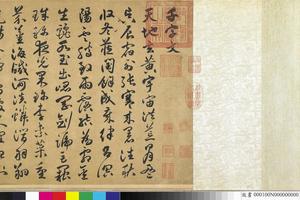 千字文
天地玄黃宇宙洪荒日月盈
昃辰宿列張寒來暑往秋
收冬藏閏餘成歲律呂調
陽雲騰致雨露結為霜金
生麗水玉出崑岡劍號巨闕
珠稱夜光果珍李柰菜重
芥薑海鹹河淡鱗潛羽翔
故書 000100N000000000